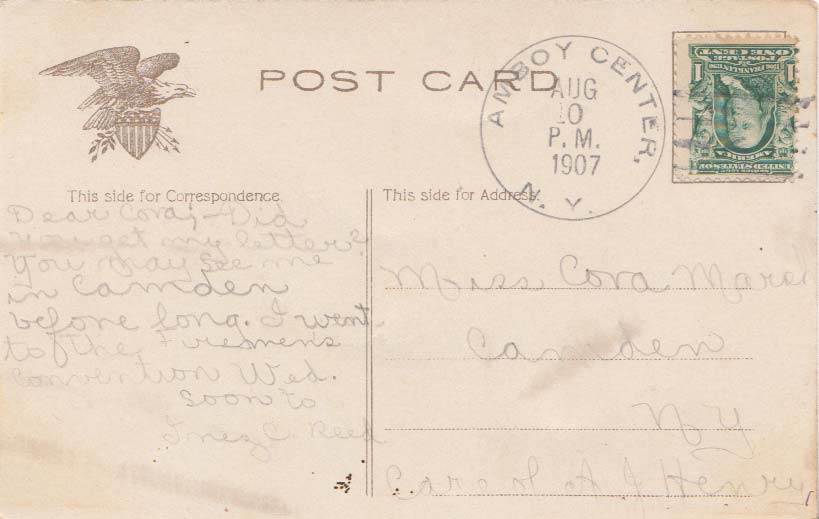 POST CARD
AMBOY CENTER,
AUG
10
P.M.
1907
N.Y.
ONE CENT
POSTAGE
1706 FRANKLIN 1790
1 1
UNITED STATES OF
AMERICA
This side for Correspondence.
This side for Address.
Dear Cora;- Did
you get my letter?
You may see me
in Camden
before long. I went
to the Firemen's
Convention Wed.
Soon to
Inez C. Reed
Miss Cora
Camden
N Y
Care of A J Henry